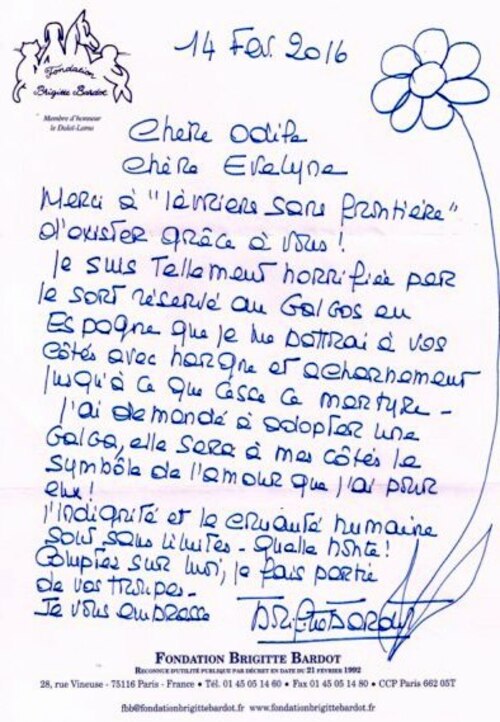 Fondation
Brigitte Bardot
Membre d'honneur
le Dalaï-Lama
14 Fev. 2016
Chère Odile
Chère Evelyne
Merci à "lévriers sans frontière"
d'exister grâce à vous !
Je suis tellement horrifiée par
le sort réservé au Galgos en
Espagne que je me battrai à vos
côtés avec hargne et acharnement
jusqu'à ce que cesse ce martyre -
J'ai demandé à adopter une
Galga, elle sera à mes côtés le
symbôle de l'amour que j'ai pour
eux !
l'indignité et la cruauté humaine
sont sans limites - quelle honte !
Comptez sur moi, je fais partie
de vos troupes -
Je vous embrasse Brigitte Bardot
FONDATION BRIGITTE BARDOT
RECONNUE D'UTILITÉ PUBLIQUE PAR DÉCRET EN DATE DU 21 FÉVRIER 1992
28, rue Vineuse - 75116 Paris - France • Tél. 01 45 05 14 60 • Fax 01 45 05 14 80 • CCP Paris 662 05T
fbb@fondationbrigittebardot.fr www.fondationbrigittebardot.fr